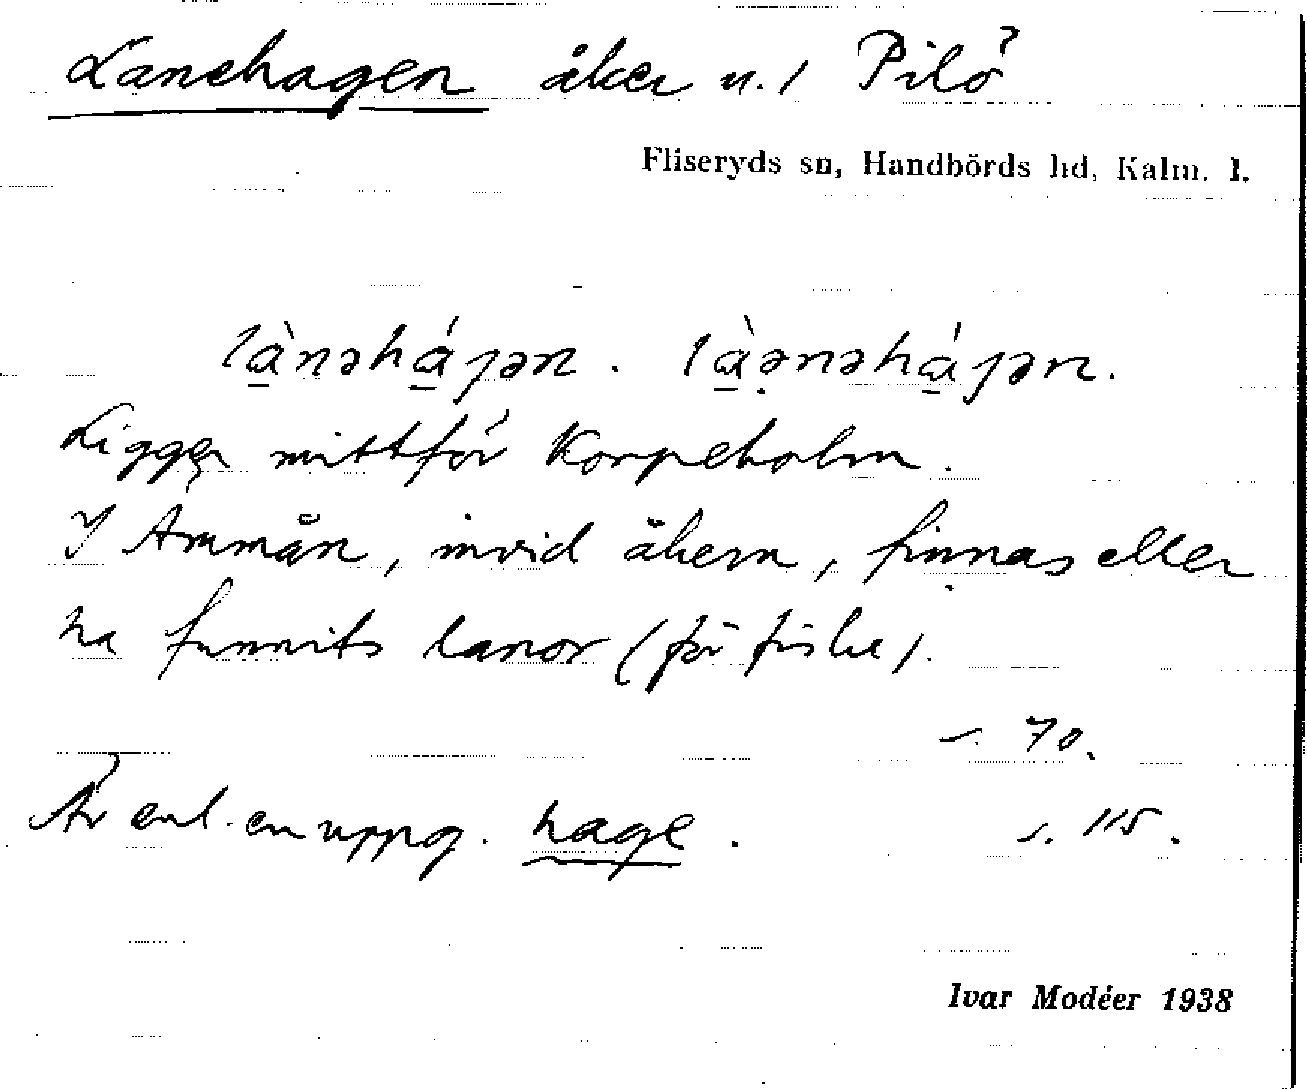 Lanehagen åker u. / Pilö?
Fliseryds sn, Handbörds hd, Kalm. l.
là̱nəhá̱ɟən. là̱ə̣nəhá̱ɟən.
Ligger mittför Korpeholm.
I Ammån, invid åkern, finnas eller
ha funnits lanor (för fiske).
s. 70.
Är enl. en uppg. hage. s. 115.
Ivar Modéer 1938